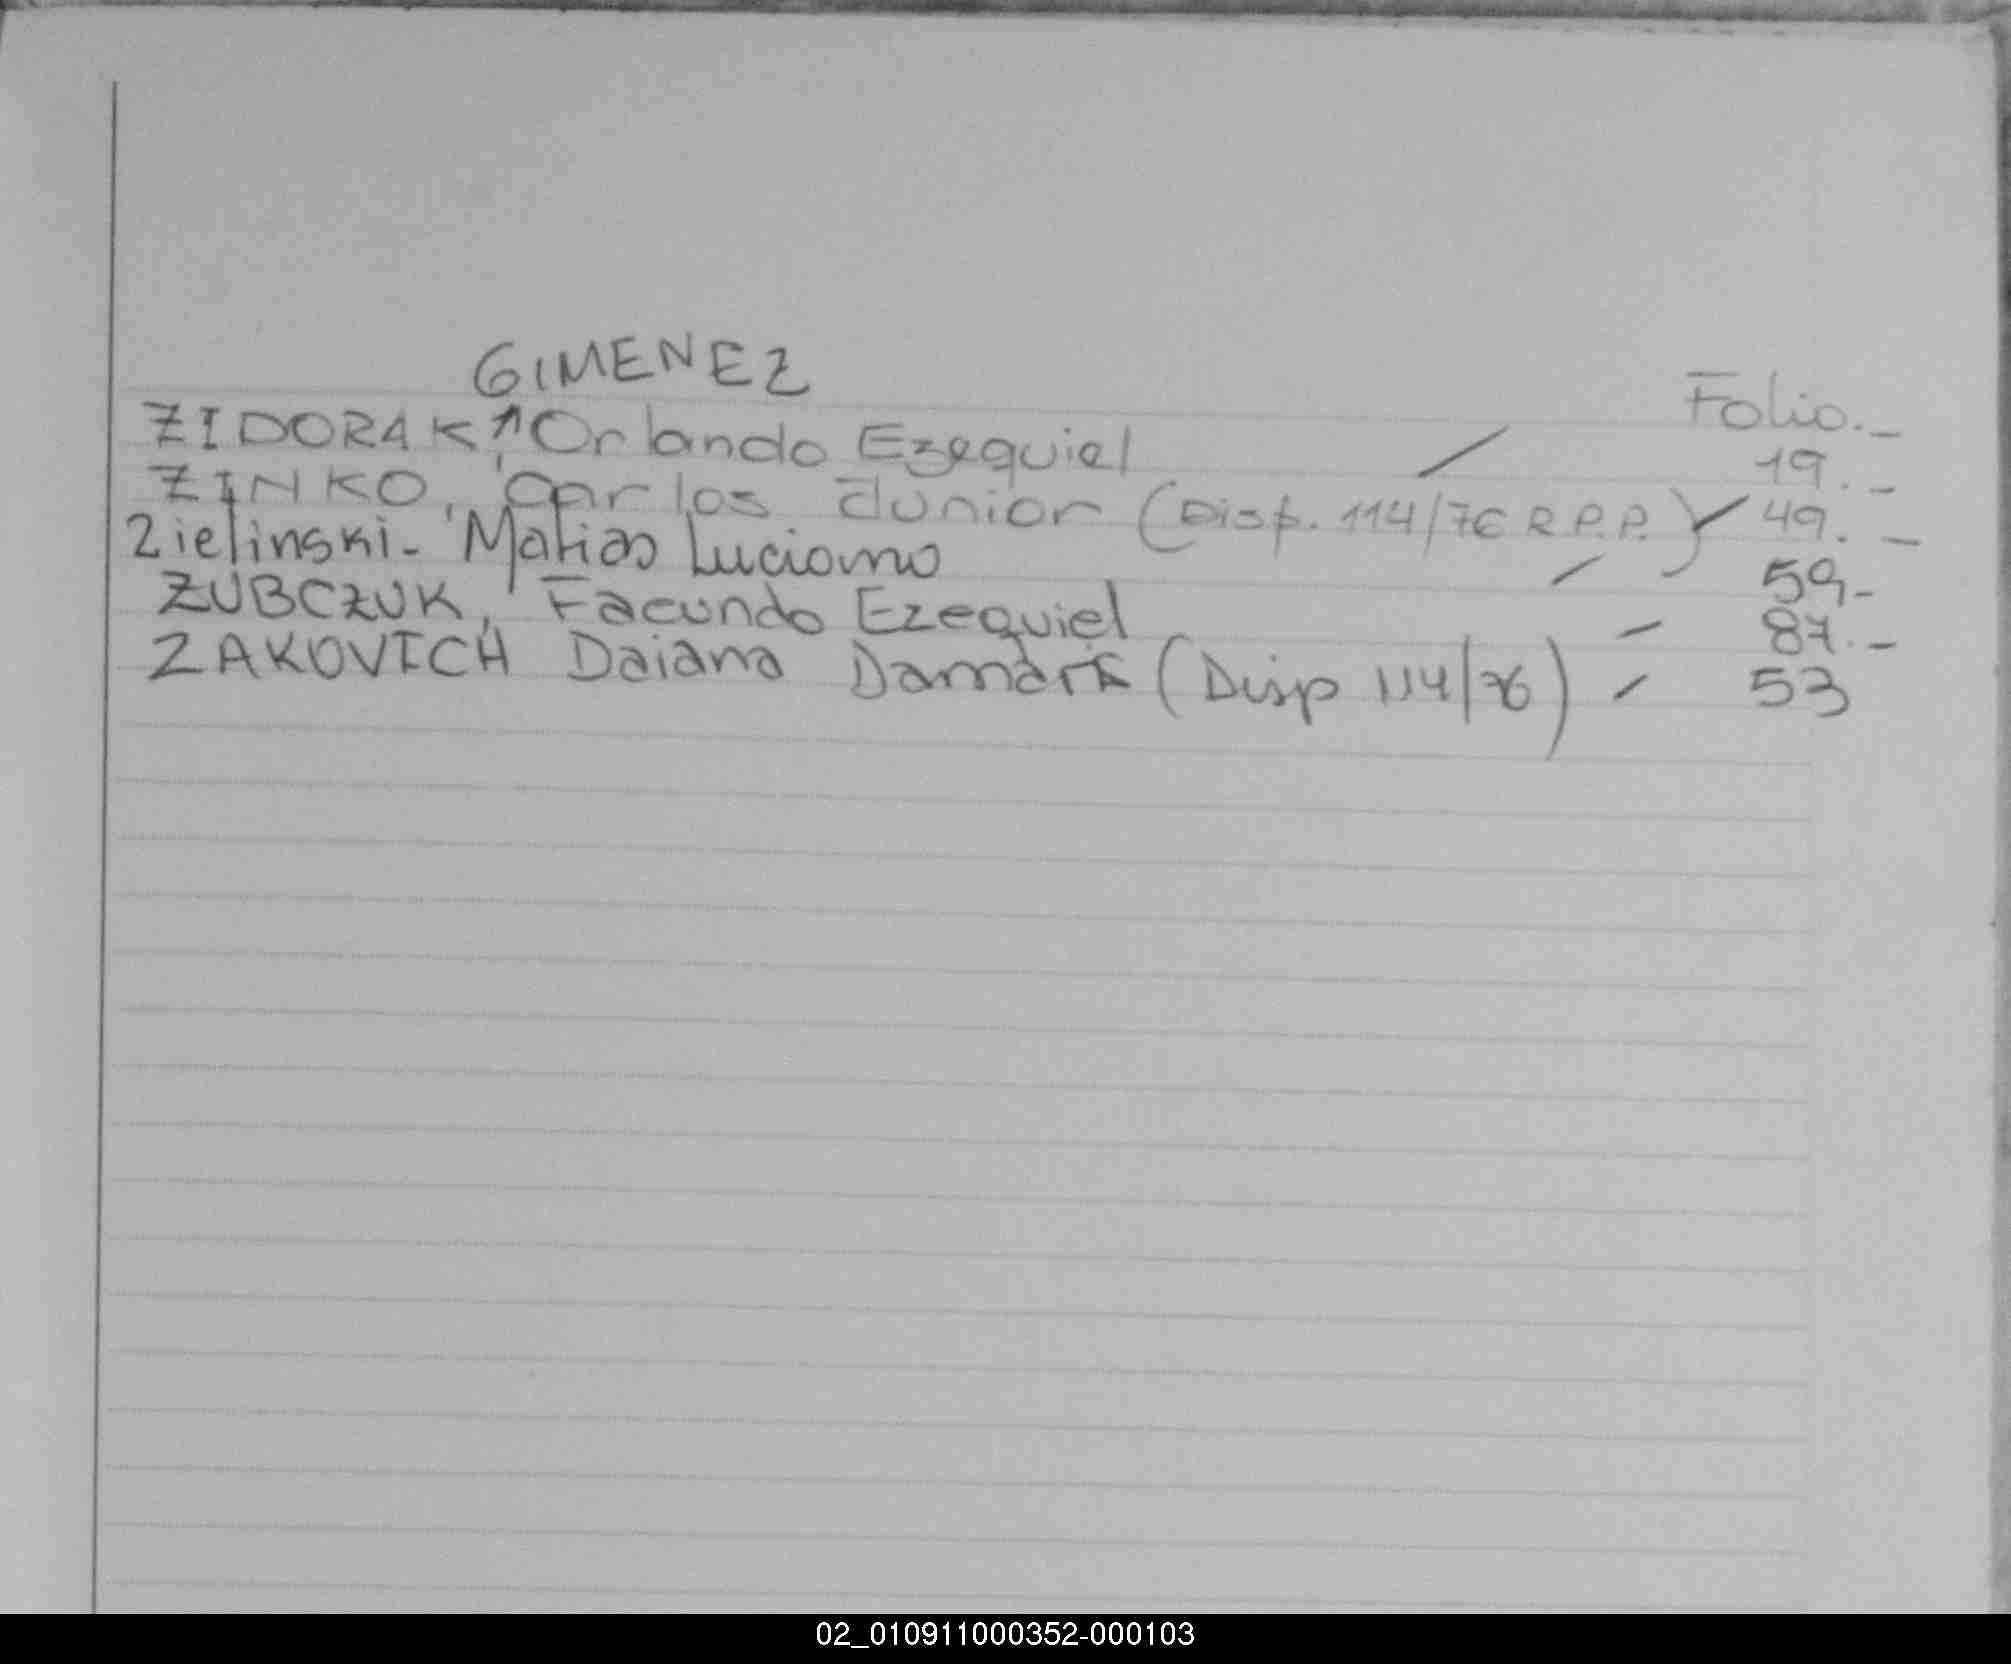 GIMENEZ
Folio.-
ZIDORAK,↑ Orlando Ezequiel / 19.-
ZINKO, Carlos Junior (Disp. 114/76 R.P.P.) / 49.-
Zielinski - Matias Luciano / 59-
ZUBCZUK, Facundo Ezequiel - 87.-
ZAKOVICH Daiana Damaris (Disp 114/76) - 53
02_010911000352-000103